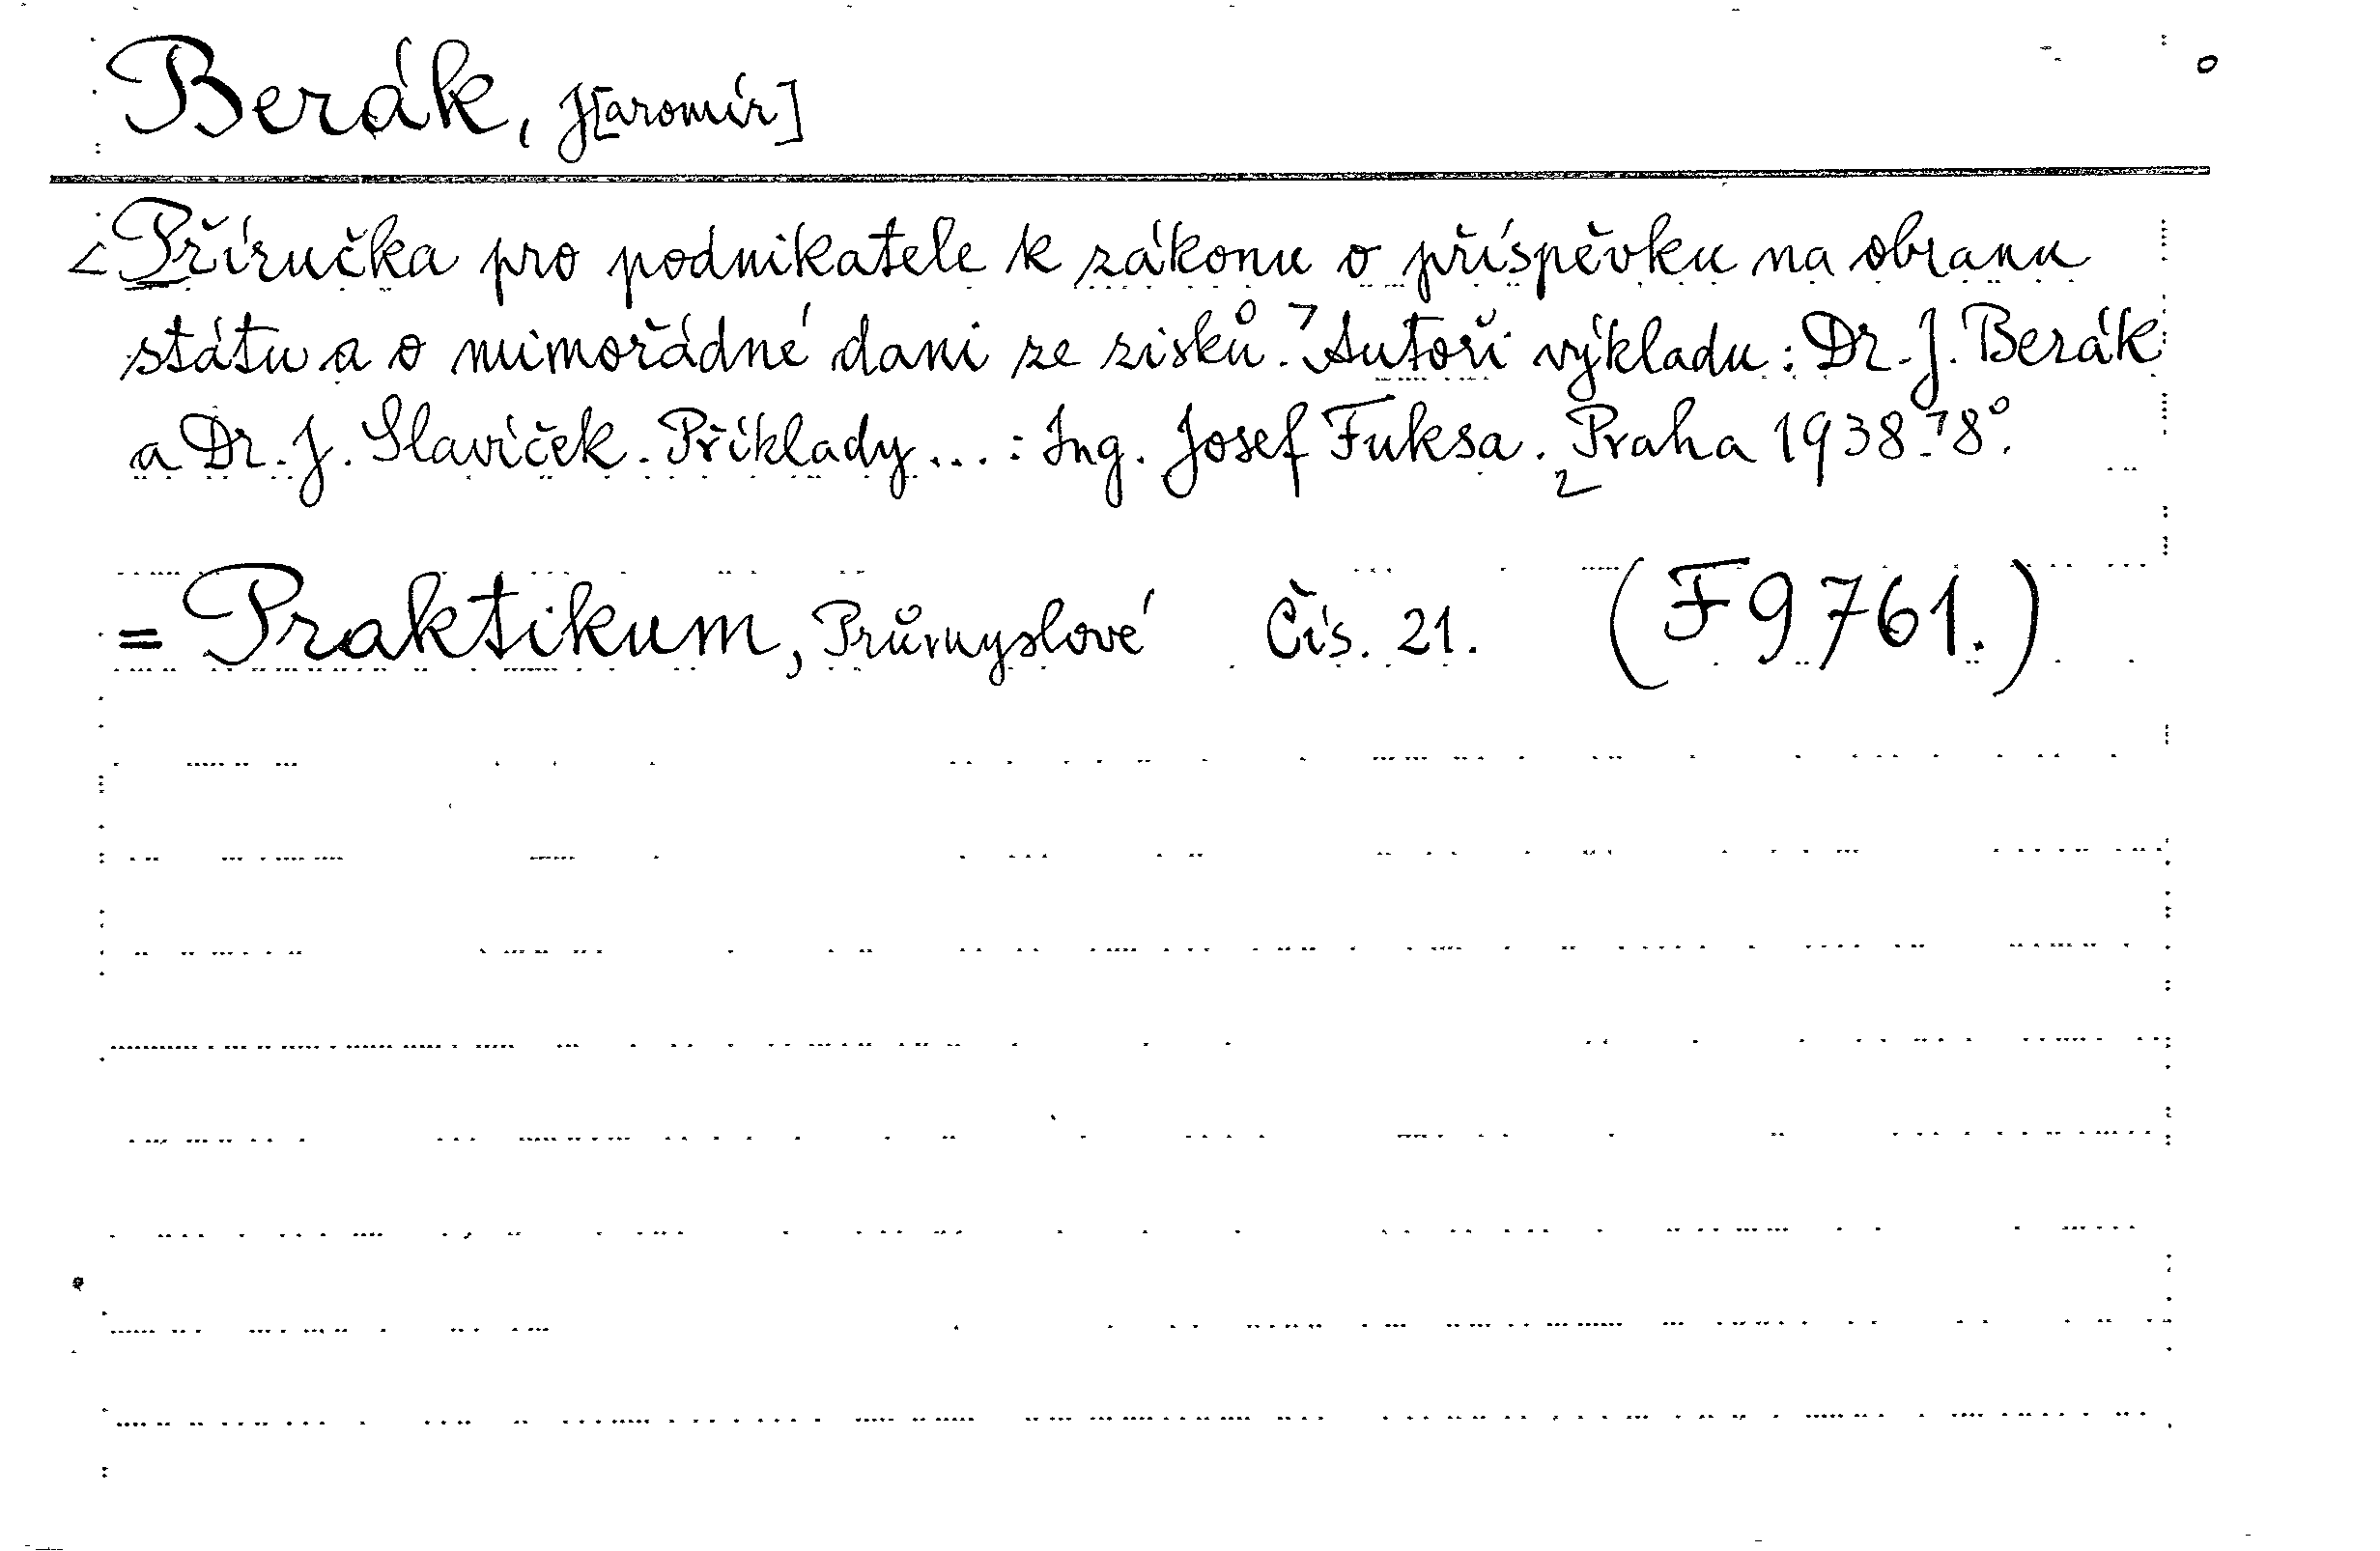 Berák, J[aromír]
Příručka pro podnikatele k zákonu o příspěvku na obranu
státu a o mimořádné dani ze zisků. Autoři výkladu: Dr. J. Berák
a Dr. J. Slavíček. Příklady...: Ing. Josef Fuksa. Praha 1938. 8°.
= Praktikum, Průmyslové Čís. 21. (F 9761.)